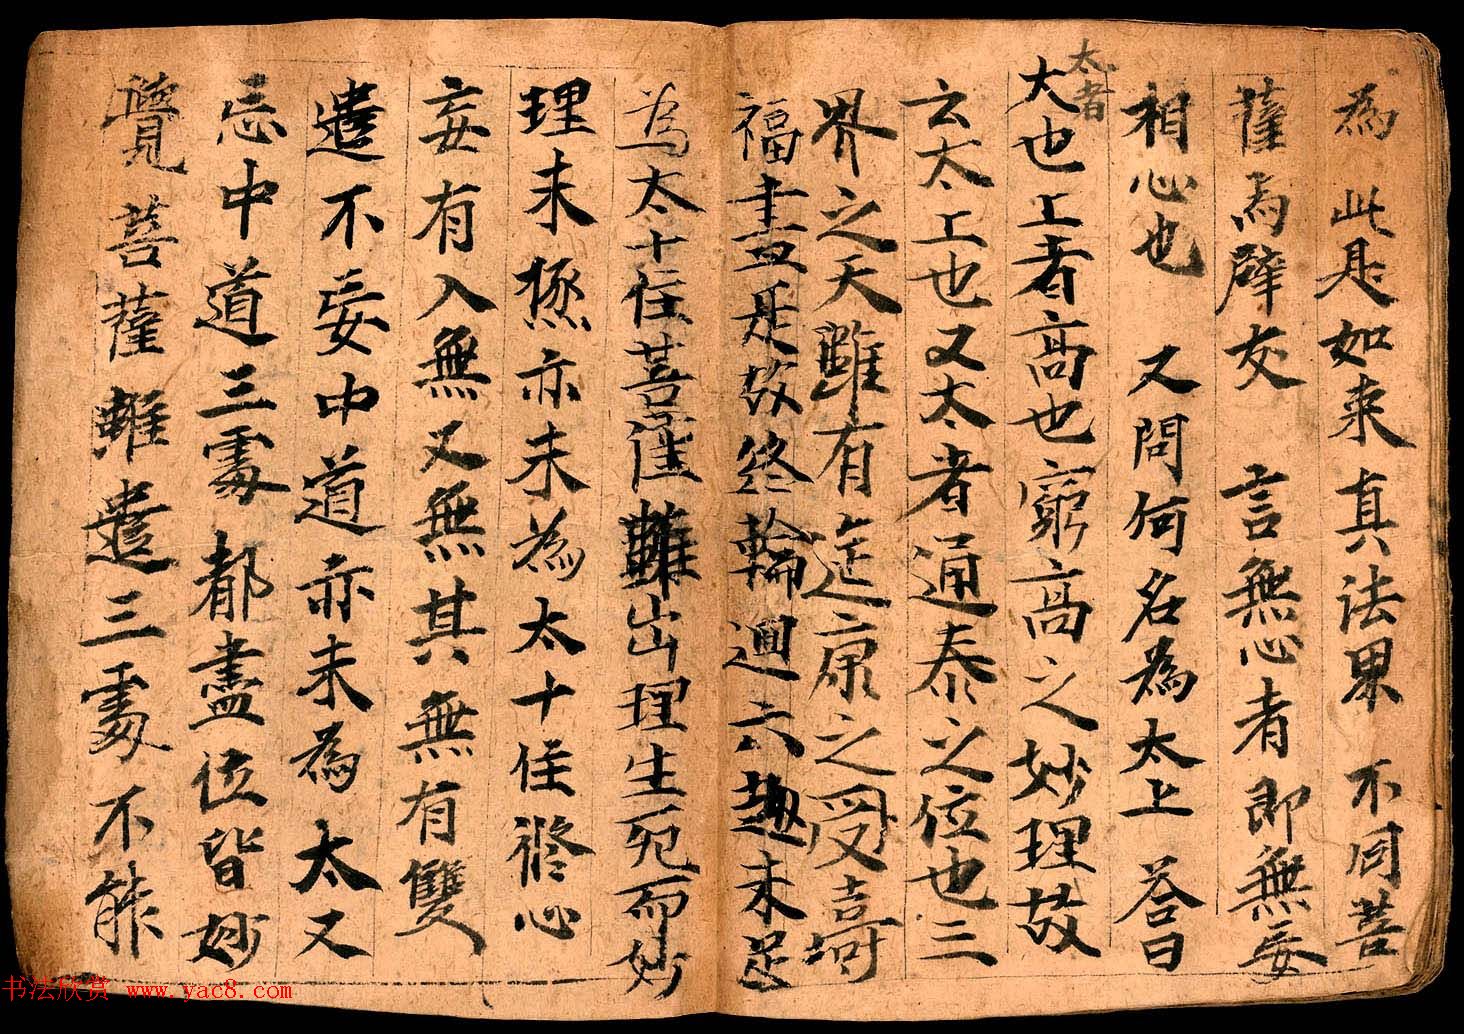 為此是如來真法界不同菩
薩為辟支 言無心者即無妄
相心也 又問何名為太上 答曰
太者
大也上者高也窮高之妙理故
云太上也又太者通泰之位也三
界之天雖有延康之受壽
福盡是故終輪迴六趣未足
為太十住菩薩雖出理生死而妙
理未極亦未為太十住修心
妄有入無又無其無有雙
遣不妄中道亦未為太又
忘中道三處都盡位皆妙
覺菩薩雖遣三處不能
书法欣赏 www.yac8.com